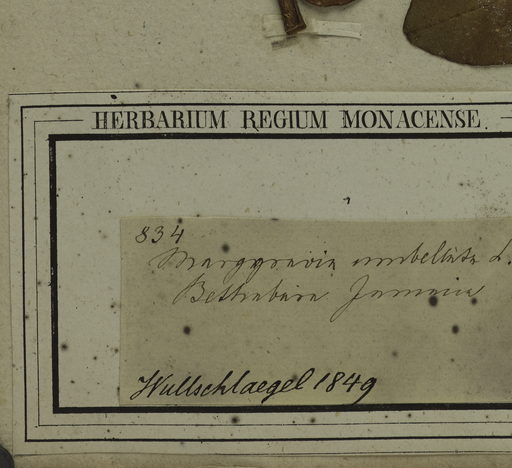 HERBARIUM REGIUM MONACENSE.
834
Margyravia umbellata L.
Bethabara Jamaica
Wullschlaegel 1849